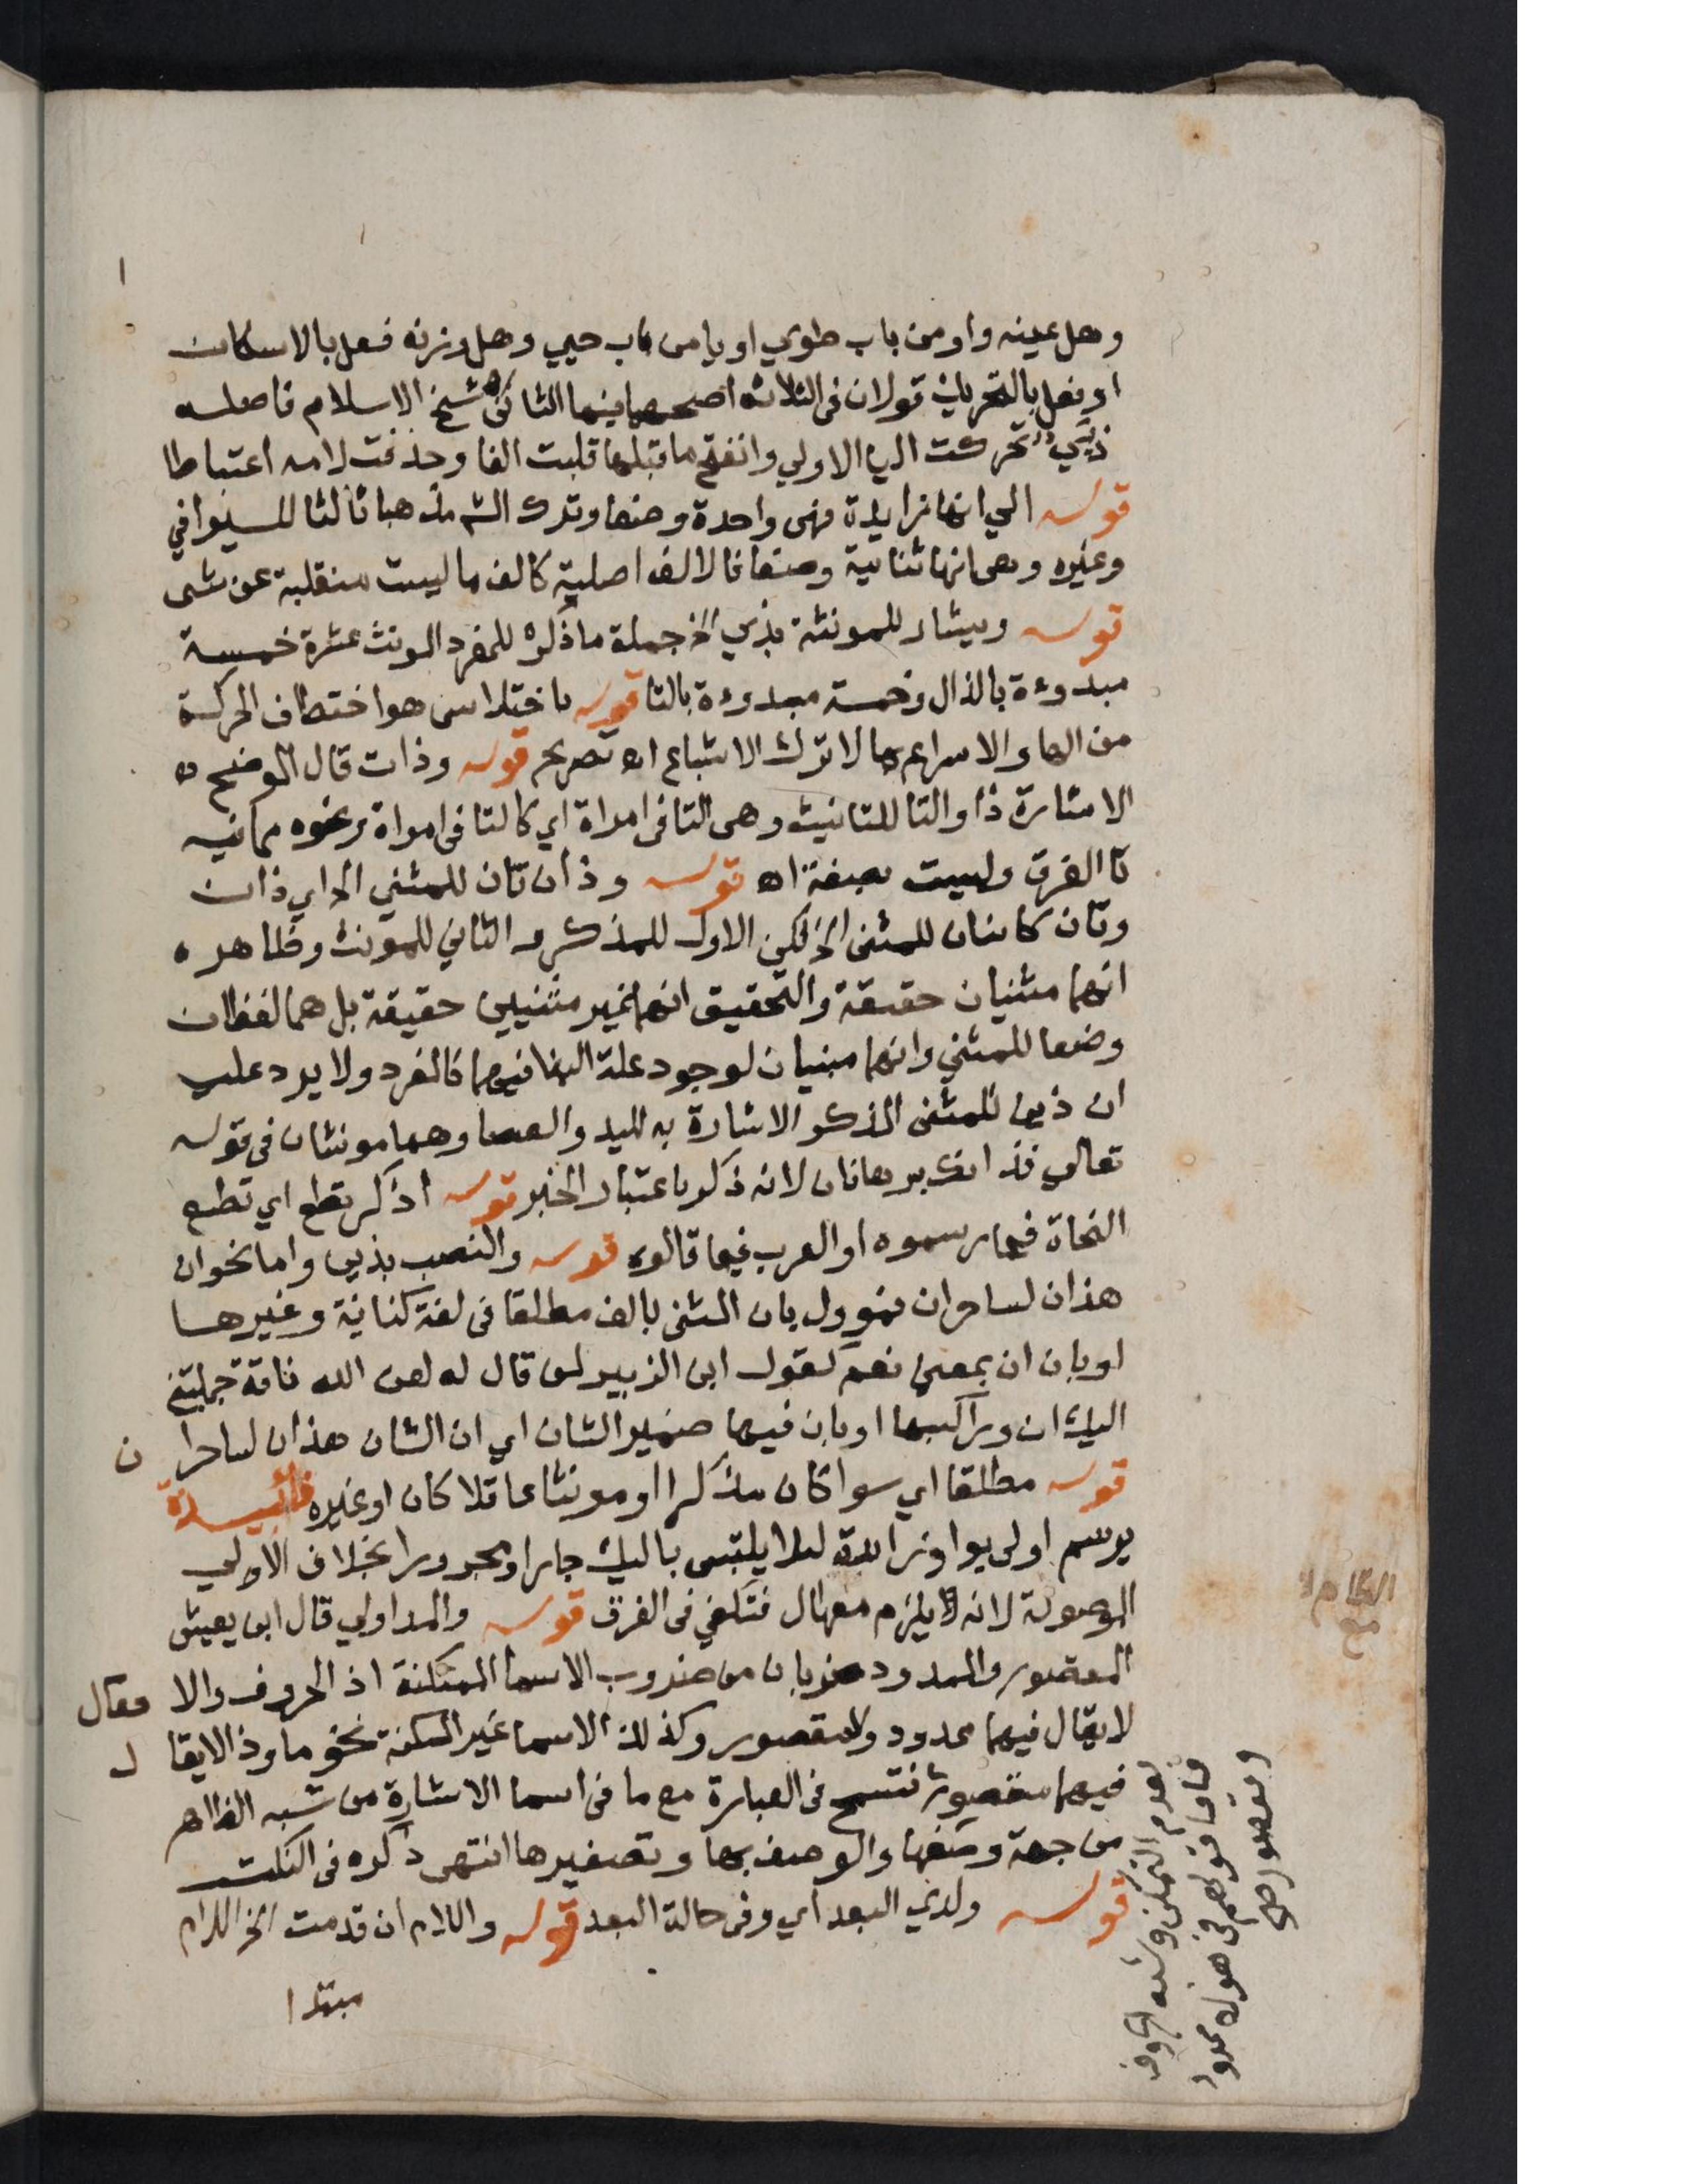 وهل عينه واو من باب طوي او يا من باب حيي وهل وزنه فعل بالاسكان
او فعل بالتحريك قولان في الثلاثة اصحهما فيها الثاني شيخ الاسلام فاصله
ذيي تحركت اليا الاولي وانفتح ما قبلها قلبت الفا وحذفت لامه اعتباطا
قوله الي انها زايدة فهي واحدة وضعا وترك الش مذهبا ثالثا للسيرافي
وغيره وهي انها ثنائية وضعا فالالف اصلية كالف ما ليست منقلبة عن شي
قوله ويشار للمونثة بذي الخ جملة ما ذكره للمفرد المونث عشرة خمسة
مبدوءة بالذال وخمسة مبدوءة بالتا قوله باختلاس هو اختطاف الحركة
من الها والاسراع بها لا ترك الاشباع اه تصريح قوله وذات قال الموضح
الاشارة ذا والتا للتانيث وهي التا في امراة اي كالتا في امراة ونحوه مما فيه
تا الفرق وليست بصفة اه قوله وذان تان للمثني الخ اي ذان
وتان كائنان للمثني الخ لكن الاول للمذكر والثاني للمونث وظاهره
انهما مثنيان حقيقة والتحقيق انهما غير مثنيين حقيقة بل هما لفظان
وضعا للمثني وانهما مبنيان لوجود علة البنا فيهما كالمفرد ولا يرد علي
ان ذين للمثني المذكر الاشارة به لليد والعصا وهما مونثان في قوله
تعالي فذانك برهانان لانه ذكر باعتبار الخبر قوله اذكر تطع اي تطع
النحاة فيما رسموه او العرب فيما قالوه قوله والنصب بذين واما نحو ان
هذان لساحران فموول بان المثني بالف مطلقا في لغة كنانة وغيرها
او بان ان بمعني نعم كقول ابن الزبير لمن قال له لعن الله ناقة حملتني
اليك ان وراكبها او بان فيها ضمير الشان اي ان الشان هذان لساحرا ن
قوله مطلقا اي سوا كان مذكرا او مونثا عاقلا كان او غيره فائدة
يرسم اولي بواو زائدة لئلا يلتبس باليك جارا ومجرورا بخلاف الاولي
الموصولة لانه يلزم معها ال فتكفي في الفرق قوله والمد اولي قال ابن يعيش
المقصور والممدود ضربان من ضروب الاسما المتمكنة اذ الحروف والا فعال
لا يقال فيهما ممدود ولا مقصور وكذلك الاسما غير المتمكنة نحو ما وذا لا يقا ل
فيهما مقصور فتسمح في العبارة مع ما في اسما الاشارة من شبه الظاهر
من جهة وصفها والوصف بها وتصغيرها انتهي ذكره في النكت
قوله ولدي البعد اي وفي حالة البعد قوله واللام ان قدمت الخ اللام
مبتدا
لعدم التمكن وشبه الحروف
فاما قولهم في هؤلاء ممدود
ومقصور صح